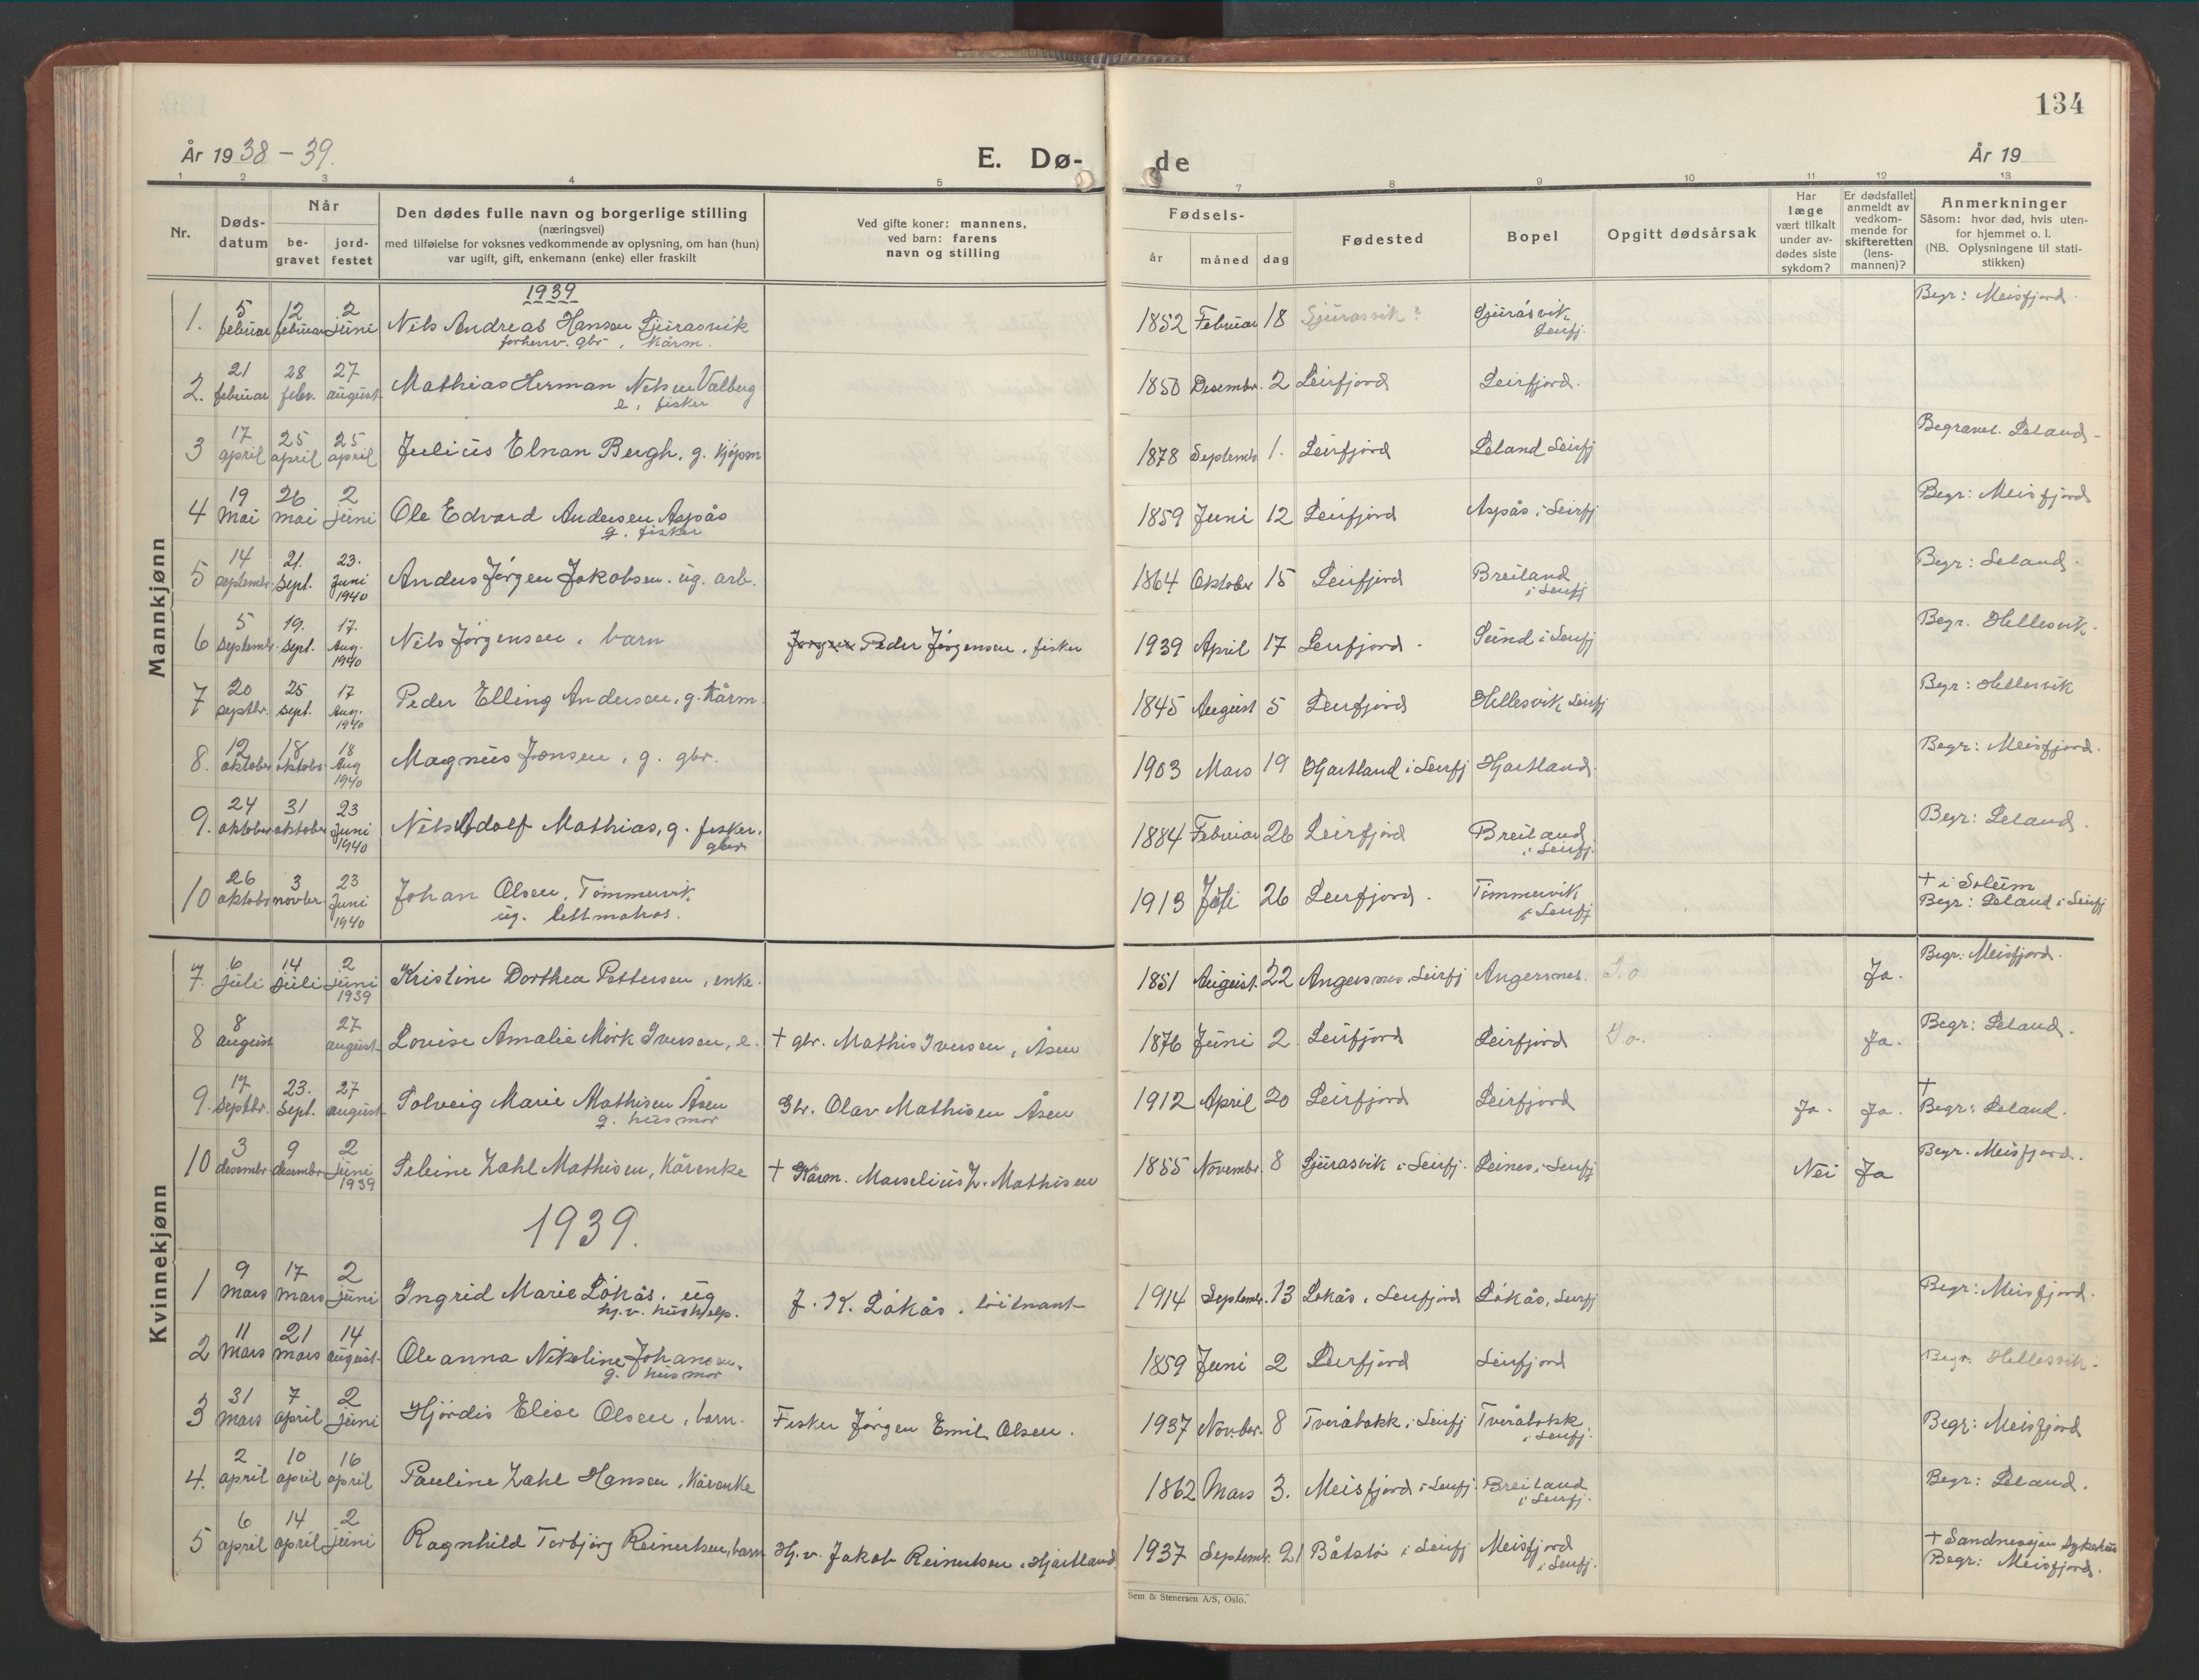 134
År 1938 - 39.
E. Dø-
de
År 19
1 2 3 4 5 7 8 9 10 11 12 13
Nr.
Døds-
datum
Når
be-
gravet
jord-
festet
Den dødes fulle navn og borgerlige stilling
(næringsvei)
med tilføielse for voksnes vedkommende av oplysning, om han (hun)
var ugift, gift, enkemann (enke) eller fraskilt
Ved gifte koner: mannens,
ved barn: farens
navn og stilling
Fødsels-
år måned dag
Fødested
Bopel
Opgitt dødsårsak
Har
læge
vært tilkalt
under av-
dødes siste
sykdom?
Er dødsfallet
anmeldt av
vedkom-
mende for
skifteretten
(lens-
mannen)?
Anmerkninger
Såsom: hvor død, hvis uten-
for hjemmet o. l.
(NB. Oplysningene til stati-
stikken)
Mannkjønn
1939
1. 5 februar 12 februar 2 juni Nils Andreas Hansen Sjurasvik 1852 Februar 18 Sjurasvik? Sjuråsvik Leirfj. Begr: Meisfjord.
forhenv. gbr, kårm.
2. 21 februar 28 febr. 27 august Mathias Herman Nilsen Valberg 1850 Desembr. 2 Leirfjord Leirfjord.
e, fisker
3 17 april 25 april 25 april Julius Elnan Bergh, g. kjøpm 1878 Septembr 1. Leirfjord Leland Leirfj Begravel. Leland-
4 19 Mai 26 mai 2 juni Ole Edvard Andersen Aspås 1859 Juni 12 Leirfjord Aspås i Leirfj Begr: Meisfjord
g. fisker
5 14 septembr. 21. Sept. 23. Juni 1940 Anders Jørgen Jakobsen. ug. arb. 1864 Oktober 15 Leirfjord Breiland i Leirfj Begr: Leland.
6 5 septembr. 19. Sept. 17. Aug. 1940 Nils Jørgensen. barn Jørgen Peder Jørgensen, fisker 1939 April 17 Leirfjord. Sund i Leirfj Begr. Hellesvik.
7 20 septbr. 25 sept. 17 Aug. 1940 Peder Elling Andersen, g. kårm. 1845 August 5 Leirfjord Hellesvik Leirfj Begr: Hellesvik
8. 12 oktober 18 oktobr 18 Aug 1940 Magnus Jonsen, g. gbr. 1903 Mars 19 Hjartland i Leirfj Hjartland. Begr: Meisfjord.
9. 24 oktober 31 oktober 23 Juni 1940 Nils Adolf Mathias, g. fisker, 1884 Februar 26 Leirfjord Breiland i Leirfj. Begr: Leland.
gbr
10 26 oktobr 3 novber. 23 Juni 1940 Johan Olsen, Tømmervik 1913 Juli 26 Leirfjord. Tømmervik i Leirfj + i Soleim
ug. lettmatros. Begr: Leland i Leirfj
Kvinnekjønn
7. 6 juli 14 juli 2 juni 1939 Kristine Dorthea Pettersen, enke. 1851 August. 22 Angersnes, Leirfj Angersnes. Ja. Begr: Meisfjord.
8 8 august 27 august Lovise Amalie Mørk Iversen, e. + gbr. Mathis Iversen, Åsen 1876 Juni 2 Leirfjord Leirfjord Ja. Begr: Leland.
9. 17 septbr. 23. Sept. 27 august Solveig Marie Mathisen Åsen Gbr. Olav Mathisen Åsen 1912 April 20 Leirfjord Leirfjord Ja. Ja. + Begr: Leland.
g. husmor
10 3 desembr 9 desembr 2 juni 1939 Seleine Zahl Mathisen, Kårenke + Kårm. Marselius Z. Mathisen 1855 Novembr. 8 Sjurasvik i Leirfj. Leines, i Leirfj Nei Ja Begr. Meisfjord.
1939.
1 9 Mars 17 Mars 2 juni Ingrid Marie Løkås. ug J. K. Løkås. løitnant 1914 Septembr. 13 Løkås, Leirfjord Løkås, Leirfj Begr: Meisfjord.
hj.v. hushjelp.
2 11 Mars 21 mars 14 august Oleanna Nikoline Johansen. 1859 Juni 2 Leirfjord Leirfjord Begr. Hellesvik.
g. husmor
3 31 mars 7 april 2 juni Hjørdis Elise Olsen, barn. Fisker Jørgen Emil Olsen. 1937 Novbr. 8 Tveråbakk, i Leirfj Tveråbakk i Leirfj. Begr: Meisfjord
4. 2 april 10 april 16 april Pauline Zahl Hansen, Kårenke 1862 Mars 3. Meisfjord i Leirfj. Breiland i Leirfj. Begr: Leland.
5 6 april 14 april 2 juni Ragnhild Torbjørg Reinertsen, barn Hj.v. Jakob Reinertsen, Hjartland 1937 Septembr. 21 Båtstø i Leirfj Meisfjord i Leirfj. + Sandnessjøen Sykehus
Begr: Meisfjord.
Sem & Stenersen A/S, Oslo.